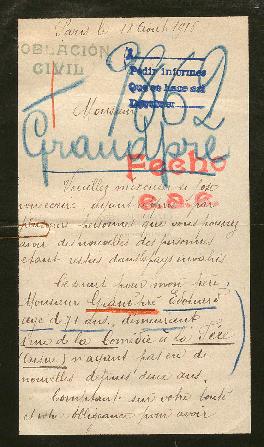 Paris le 11 Août 1916
POBLACIÓN
CIVIL
Pedir informes
Que se hace así
1862
Monsieur
Grandpré
Fecho
Veuillez m'excuser si j'ose
par
personnes que vous pouvez
avoir des nouvelles des personnes
étant restés dans les pays envahis
Ce serait pour mon père,
Monsieur Grandpré Edouard
âgé de 71 ans, demeurant
rue de la Comédie à la Fère
(Aisne) n'ayant pas eu de
nouvelles depuis deux ans.
Comptant sur votre bonté
et votre obligeance pour avoir